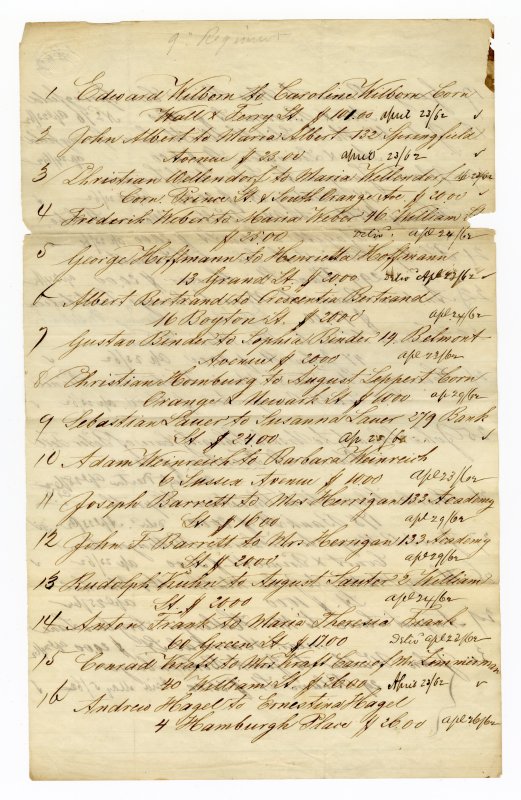 9th Regiment
1 Edward Wilborn to Caroline Wilborn Corn
Wall & Ferry St. $ 101.00 april 23/62
2 John Albert to Maria Albert 132 Springfield
Avenue $ 23.00 april 23/62
3 Christian Wellendorf to Maria Wellendorf 23/62
Corn. Prince St. & South Orange Ave. $ 20.00
4 Frederik Weber to Maria Weber 46 William St
$ 25.00 Deliv. apl 24/62
5 George Hoffmann to Henrietta Hoffmann
13 Grand St. $ 20.00 Deliv Apl 23/62
6 Albert Bertrand to Crescentia Bertrand
16 Boyton St. $ 20.00 apl. 24/62
7 Gustav Binder to Sophia Binder 14 Belmont
Avenue $ 20.00 apl 23/62
8 Christian Homburg to August Leppert Corn
Orange & Newark St. $ 10.00 ap 29/62
9 Sebastian Lauer to Susanna Lauer 279 Bank
St. $ 24.00 ap 23/62
10 Adam Weinreich to Barbara Weinreich
6 Sussex Avenue $ 10.00 apl 23/62
11 Joseph Barrett to Mrs Herrigan 133 Academy
St. $ 16.00 apl 29/62
12 John F. Barrett to Mrs Herrigan 133 Academy
St. $ 20.00 apl 29/62
13 Rudolph Kuhn to August Sautor 2 William
St. $ 20.00 apl 24/62
14 Anton Frank to Maria Theresia Frank
60 Green St. $ 17.00 Deliv apl 23/62
15 Conrad Kraft to Mrs Kraft Care of Mr Zimmerman
40 William St. $ 26.00 April 23/62
16 Andrew Hagel to Ernestina Hagel
4 Hamburgh Place $ 26.00 apl 26/62